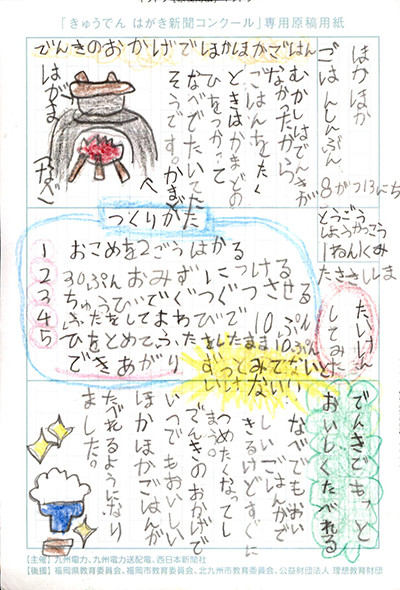 「きゅうでん はがき新聞コンクール」専用原稿用紙
でんきのおかげでほかほかごはん
ほかほか
ごはんしんぶん
8がつ13にち
とうごう
しょうがっこう
1ねん1くみ
むかしはでんきが
なかったから
ごはんをたく
ときはかまどの
ひをつかって
なべでたいてた
そうです。
かまど
はがま
(なべ)
つくりかた
1 おこめを2ごうはかる
2 30ぷんおみずにつける
3 ちゅうびでぐつぐつさせる
4 ふたをしてよわびで10ぷん
5 ひをとめて
できあがり
たいけん
してみた
でんきでもっと
おいしくたべれる
なべでもおい
しいごはんがで
きるけどすぐに
つめたくなってし
まう。
でんきのおかげで
いつでもおいしい
ほかほかごはんが
たべれるようになり
ました。
【主催】九州電力、九州電力送配電、西日本新聞社
【後援】福岡県教育委員会、福岡市教育委員会、北九州市教育委員会、公益財団法人 理想教育財団